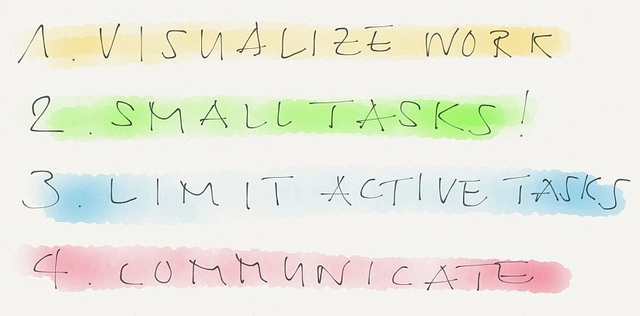 1. VISUALIZE WORK
2. SMALL TASKS!
3. LIMIT ACTIVE TASKS
4. COMMUNICATE